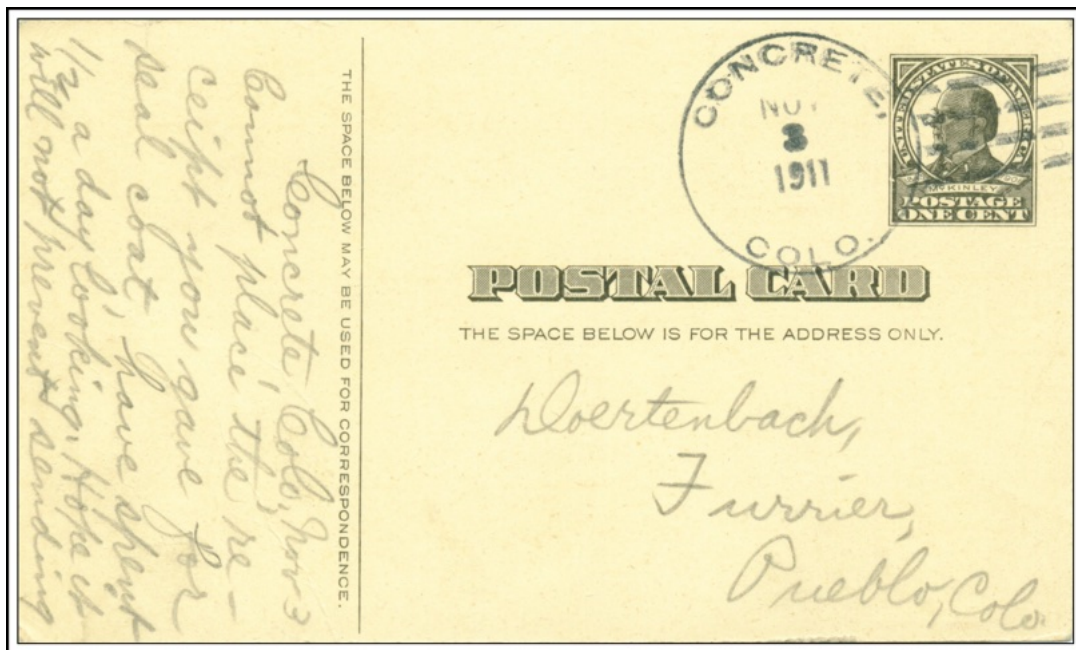 CONCRETE,
NOV
3
1911
COLO.
UNITED STATES OF AMERICA
McKINLEY
POSTAGE
ONE CENT
POSTAL CARD
THE SPACE BELOW IS FOR THE ADDRESS ONLY.
Doertenbach,
Furrier,
Pueblo, Colo.
THE SPACE BELOW MAY BE USED FOR CORRESPONDENCE.
Concrete, Colo, Nov 3
Cannot place the re-
ceipt you gave for
seal coat, have spent
1/2 a day looking. Hope it
will not prevent sending